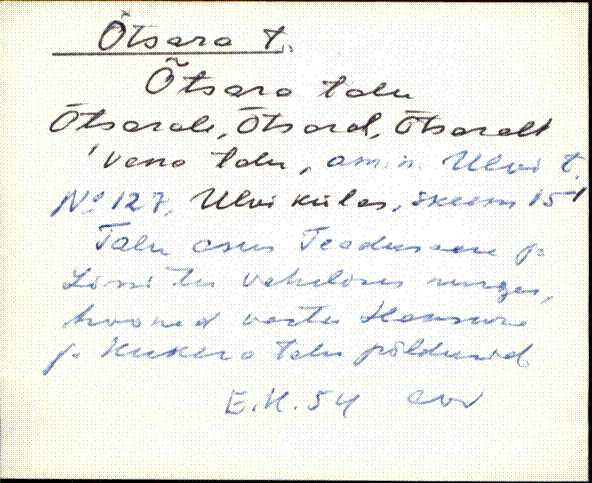 Õtsara t.
Õtsara talu
Õtsarale, Õtsaral, Õtsaralt
'vana talu, am. n. Ulvi t.
No 127, Ulvi külas, skeem 151
Talu asus Teadusaare ja
Lossi tee vahelises nurgas,
hooned vastu
ja Kukera talu põldusid.
E.K. 54